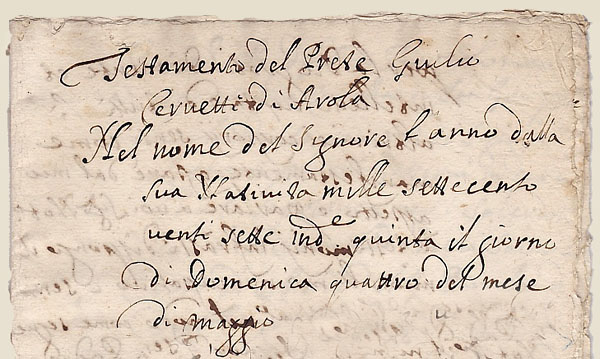 Testamento del Prete Giulio
Cervetti di Arola
Nel nome del Signore l'anno dalla
sua Natività mille settecento
venti sette Ind^e quinta il giorno
di Domenica quattro del mese
di maggio